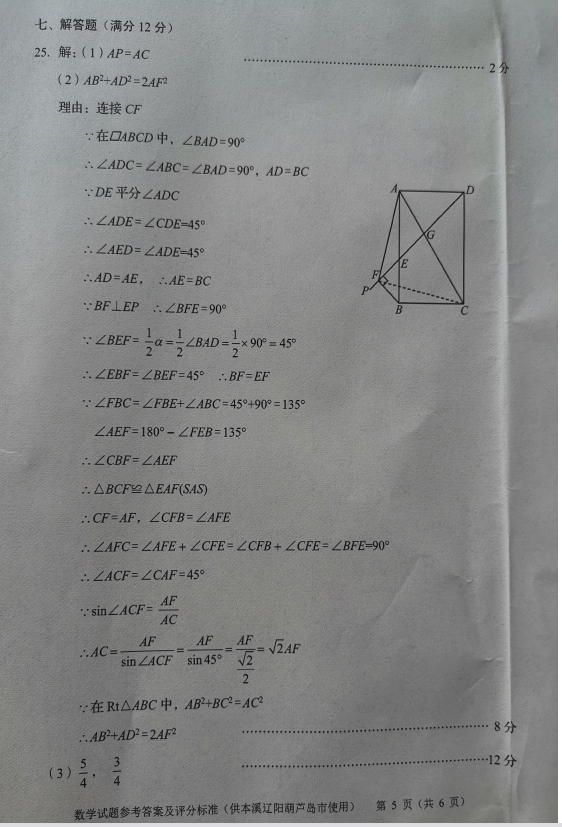 七、解答题（满分12分）
25. 解：（1）AP=AC ……………… 2分
（2）AB²+AD²=2AF²
理由：连接 CF
∵在▱ABCD 中，∠BAD=90°
∴∠ADC=∠ABC=∠BAD=90°，AD=BC
∵DE 平分∠ADC
∴∠ADE=∠CDE=45°
∴∠AED=∠ADE=45°
∴AD=AE，∴AE=BC
∵BF⊥EP ∴∠BFE=90°
∵∠BEF=1/2 α=1/2 ∠BAD=1/2×90°=45°
∴∠EBF=∠BEF=45° ∴BF=EF
∵∠FBC=∠FBE+∠ABC=45°+90°=135°
∠AEF=180°−∠FEB=135°
∴∠CBF=∠AEF
∴△BCF≌△EAF(SAS)
∴CF=AF，∠CFB=∠AFE
∴∠AFC=∠AFE+∠CFE=∠CFB+∠CFE=∠BFE=90°
∴∠ACF=∠CAF=45°
∵sin∠ACF=AF/AC
∴AC=AF/sin∠ACF=AF/sin45°=AF/(√2/2)=√2AF
∵在 Rt△ABC 中，AB²+BC²=AC²
∴AB²+AD²=2AF² ……………… 8分
（3）5/4，3/4 ……………… 12分
A D
G
E
F
P
B C
数学试题参考答案及评分标准（供本溪辽阳葫芦岛市使用） 第 5 页（共 6 页）